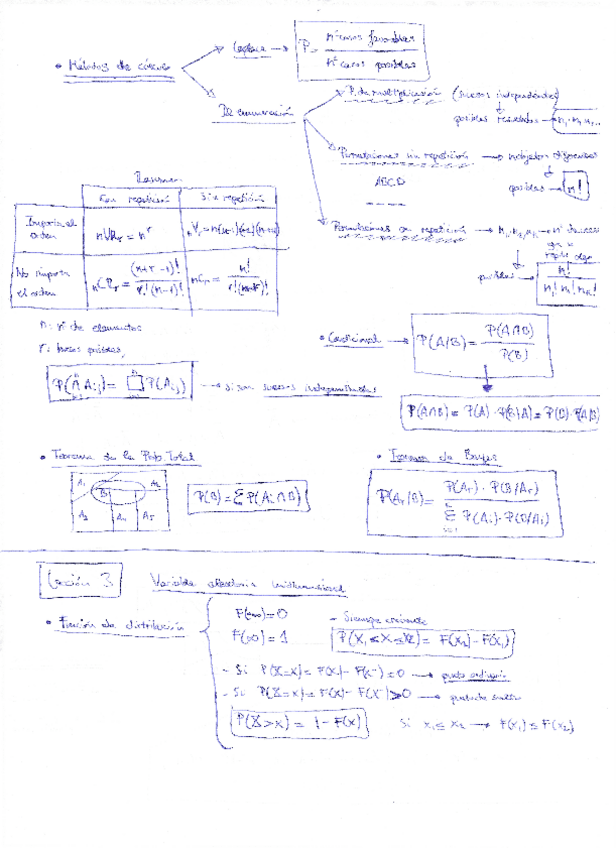 • Métodos de cálculo
Laplace → P = nº casos favorables / nº casos posibles
De enumeración
P. de multiplicación (sucesos independientes)
posibles resultados → n₁·n₂·n₃...
Permutaciones sin repetición →
ABCD
posibles → n!
Permutaciones con repetición → n₁, n₂, n₃ → nº de veces
que se
repite algo
posibles → n! / n₁! n₂! n₃!
Resumen
Con repetición
Sin repetición
Importa el orden
nVRr = n^r
No importa el orden
nCRr = (n+r-1)! / r!(n-1)!
n: nº de elementos
• Condicional → P(A/B) = P(A∩B) / P(B)
P(A∩B) = P(A)·P(B/A) = P(B)·P(A/B)
→ si son sucesos independientes
• Teorema de la Prob. Total
• Teorema de Bayes
A₁ A₂ B A₃ A₄ A₅
P(B) = Σ P(Ai∩B)
P(Ar/B) = P(Ar)·P(B/Ar) / Σ P(Ai)·P(B/Ai)
Lección 3
Variable aleatoria unidimensional
• Función de distribución
F(-∞)=0
F(∞)=1
- Siempre creciente
P(X₁≤X≤X2) = F(x₂)-F(x₁)
- Si P(X=x)= F(x)- F(x⁻)=0 → punto ordinario
- Si P(X=x)= F(x)- F(x⁻)>0 →
P(X>x) = 1-F(x)
Si x₁≤ x₂ → F(x₁) ≤ F(x₂)